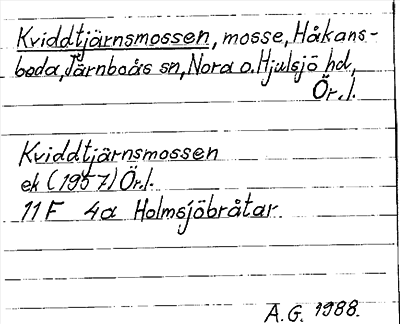 Kviddtjärnsmossen, mosse, Håkans-
boda, Järnboås sn, Nora o. Hjulsjö hd,
Ör. l.
Kviddtjärnsmossen
ek (1957) Ör. l.
11 F 4a Holmsjöbråtar.
A. G. 1988.